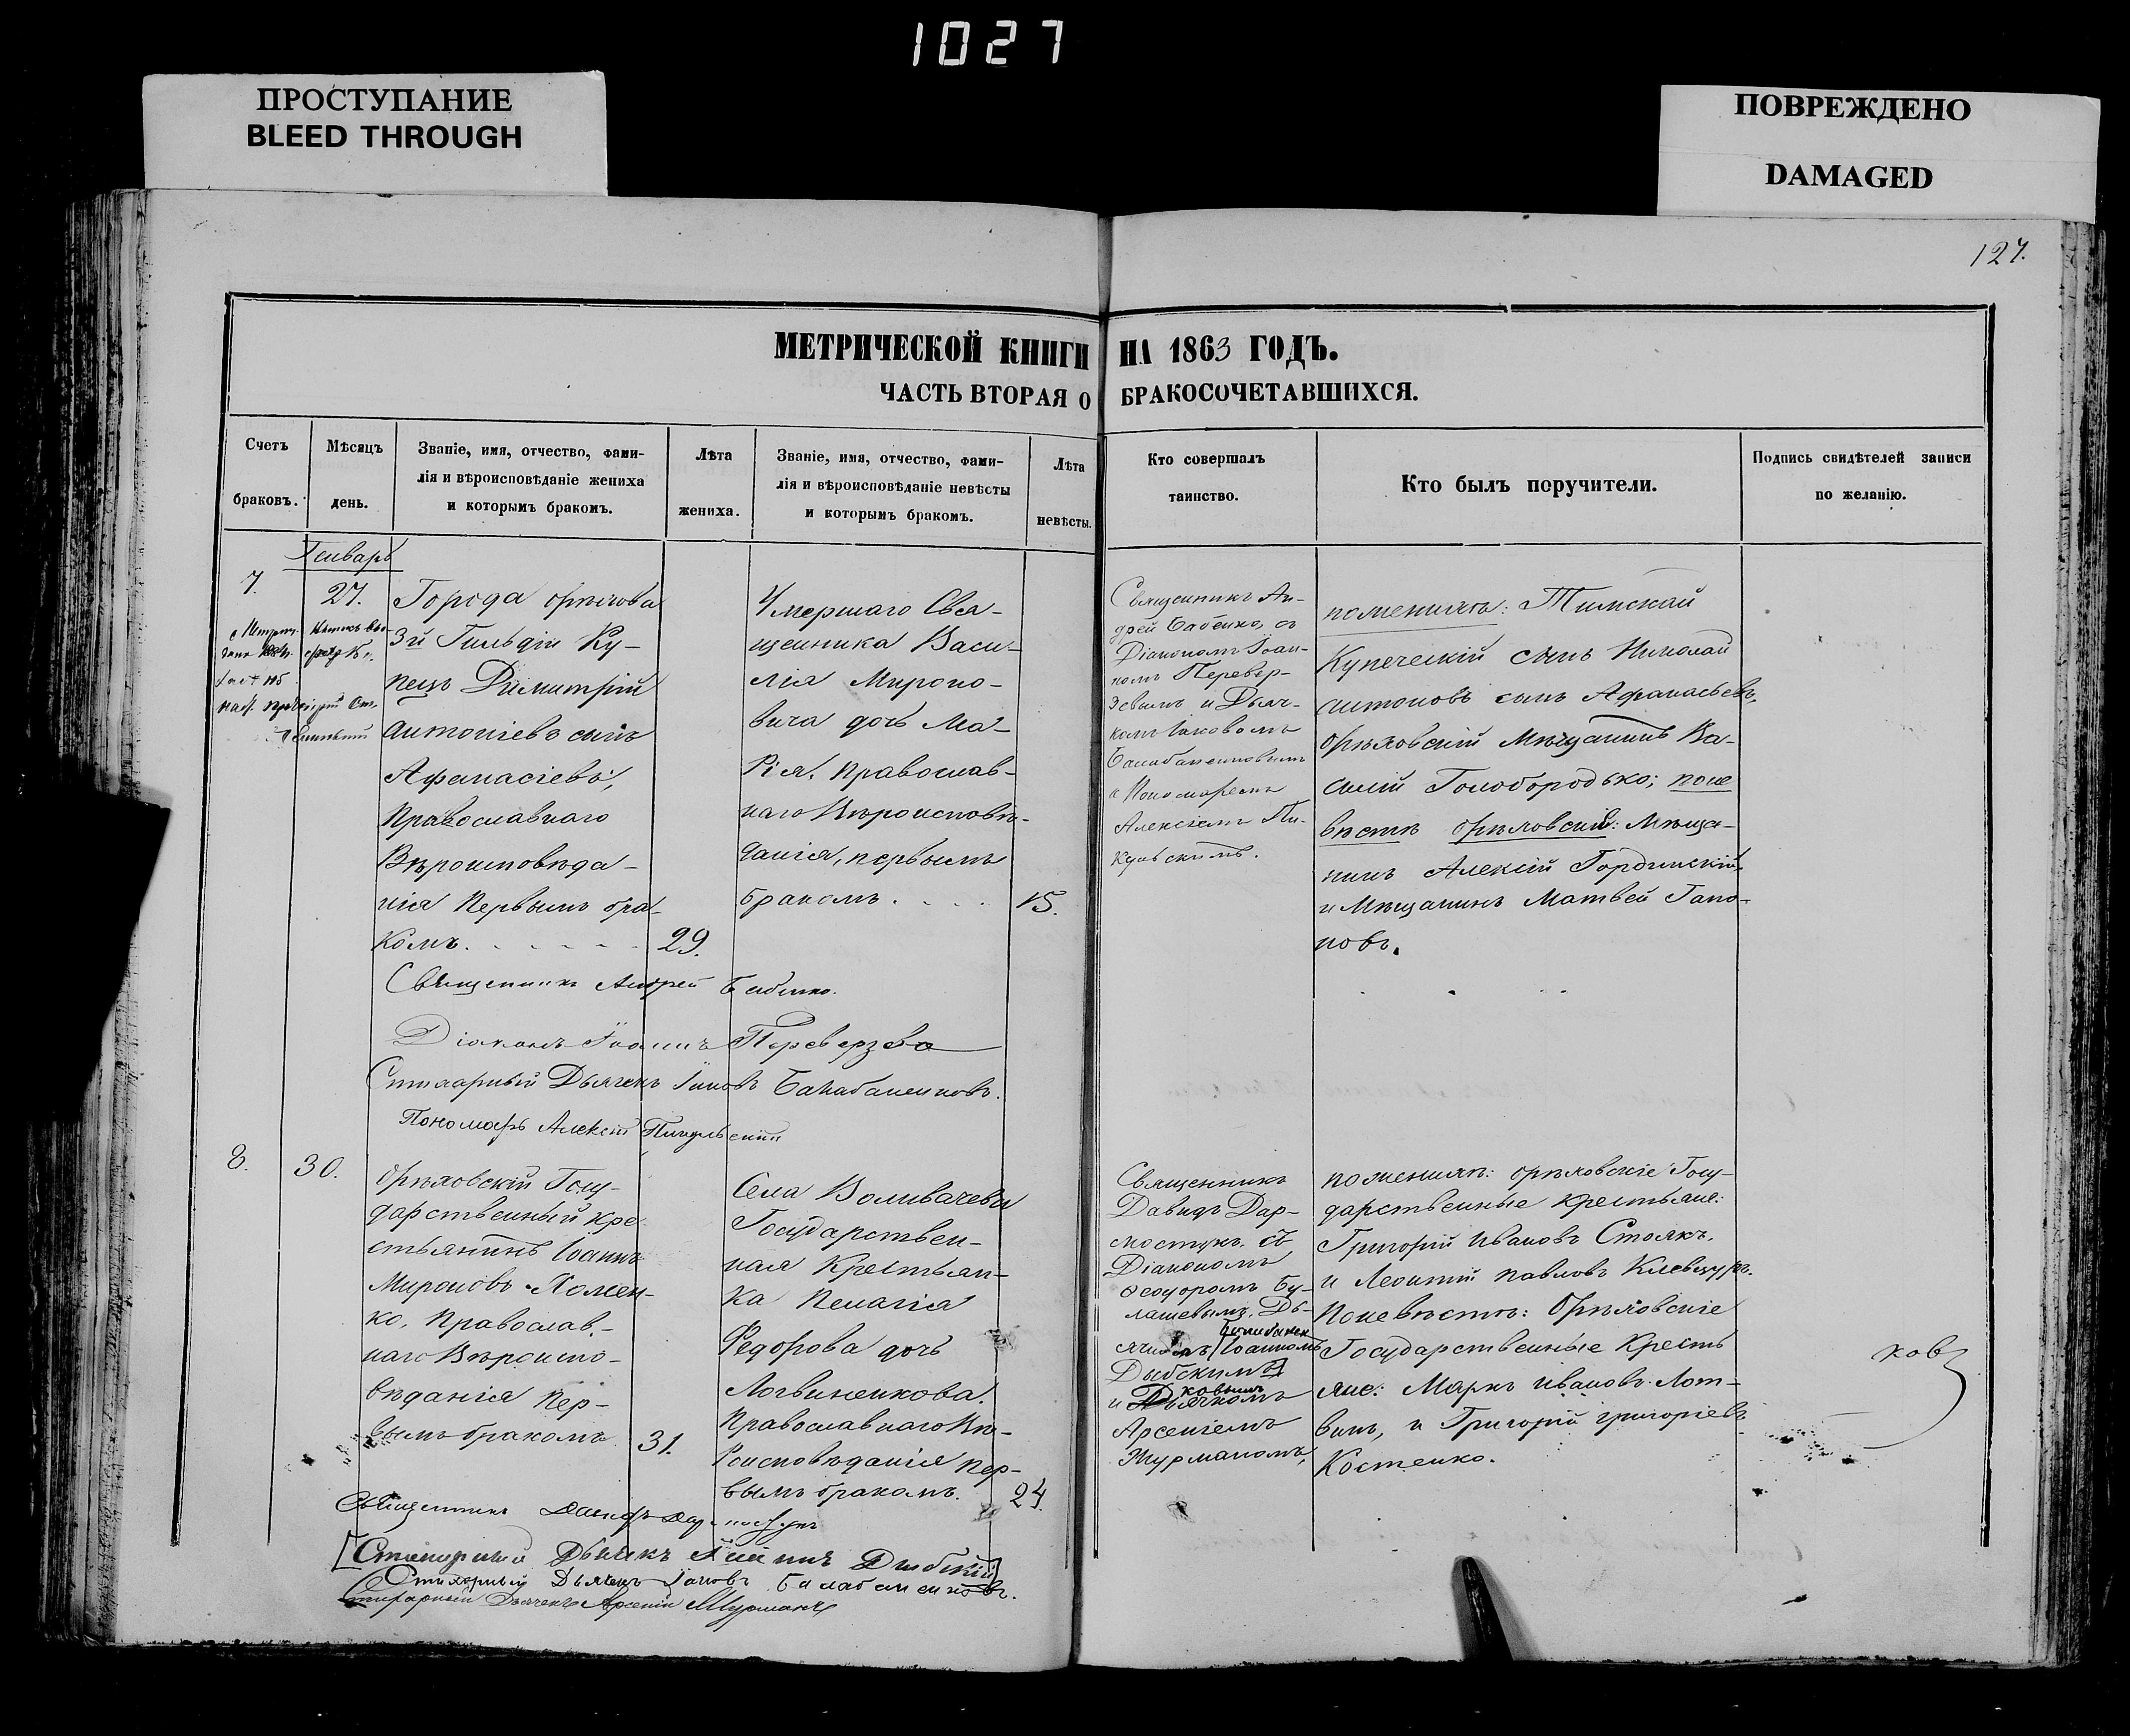 1027
ПРОСТУПАНИЕ
BLEED THROUGH
ПОВРЕЖДЕНО
DAMAGED
127.
МЕТРИЧЕСКОЙ КНИГИ НА 1863 ГОДЪ.
ЧАСТЬ ВТОРАЯ О БРАКОСОЧЕТАВШИХСЯ.
Счетъ
браковъ.
Мѣсяцъ
день.
Званіе, имя, отчество, фами-
лія и вѣроисповѣданіе жениха
и которымъ бракомъ.
Лѣта
жениха.
Званіе, имя, отчество, фами-
лія и вѣроисповѣданіе невѣсты
и которымъ бракомъ.
Лѣта
невѣсты.
Кто совершалъ
таинство.
Кто былъ поручители.
Подпись свидѣтелей записи
по желанію.
Генварь
7.
27.
Города Орѣхова
3й Гильдіи Ку-
пецъ Димитрій
Антоніевъ сынъ
Афанасіевъ,
Православнаго
Вѣроисповѣда-
нія Первымъ бра-
комъ.
29.
Умершаго Свя-
щенника Васи-
лія Мироно-
вича дочь Ма-
рія, Православ-
наго Вѣроисповѣ-
данія, первымъ
бракомъ.
15.
Священникъ Ан-
дрей Бабенко, съ
Діакономъ Іоан-
номъ Перевер-
зевымъ и Дьяч-
комъ Іаковомъ
Балабаненковымъ
и Пономаремъ
Алексіемъ Пи-
кульскимъ.
по женихѣ: Тимскай
Купеческій сынъ Николай
Антоновъ сынъ Афанасьевъ,
Орѣховскій Мѣщанинъ Ва-
силій Голобородько; по не
вѣстѣ Орѣховскій: Мѣща-
нинъ Алексій Гординскій,
и Мѣщанинъ Матвей Гапо-
новъ.
Священникъ Андрей Бабенко.
Діаконъ Іоаннъ Переверзевъ
Стихарный Дьячекъ Іаковъ Балабаненковъ.
Пономарь Алексій Пикульскій
8.
30.
Орѣховскій Госу-
дарственный Кре
стьянинъ Іоаннъ
Мироновъ Хомен-
ко, Православ-
наго Вѣроиспо-
вѣданія Пер-
вымъ бракомъ
31.
Села Воливачевы
Государствен-
ная Крестьян-
ка Пелагія
Федорова дочь
Логвиненкова.
Православнаго Вѣ-
роисповѣданія Пер-
вымъ бракомъ.
24.
Священникъ
Давидъ Дар-
мостукъ, съ
Діакономъ
Ѳеодоромъ Бу-
лашевымъ, Дь-
Іоанномъ
Дыбскимъ
ковымъ
и Дьячкомъ
Арсеніемъ
Мурманомъ,
по женихѣ: Орѣховскіе Госу-
дарственные крестьяне:
Григорій Ивановъ Стоякъ,
и Леонтій Павловъ Клевцуръ.
По невѣстѣ: Орѣховскіе
Государственные Кресть
яне: Маркъ Ивановъ Лот-
винъ, и Григорій Григоріевъ
Костенко.
ковъ
Священникъ Давидъ Дармостукъ
[Стихарный Дьячекъ Іоаннъ Дыбскій]
Стихарный Дьячекъ Іаковъ Балабаненковъ.
Стихарный Дьячекъ Арсеній Мурманъ